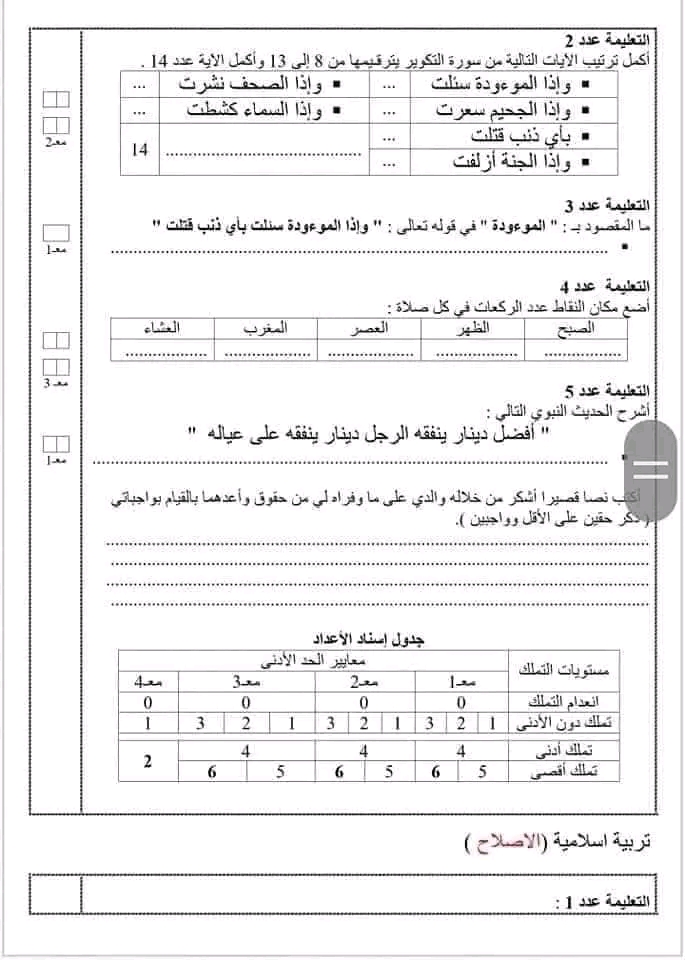 التعليمة عدد 2
أكمل ترتيب الآيات التالية من سورة التكوير بترقيمها من 8 إلى 13 وأكمل الآية عدد 14 .
▪ وإذا الموءودة سئلت ... ▪ وإذا الصحف نشرت ...
▪ وإذا الجحيم سعرت ... ▪ وإذا السماء كشطت ...
▪ بأي ذنب قتلت ... ........................................ 14
▪ وإذا الجنة أزلفت ...
معـ2
التعليمة عدد 3
ما المقصود بـ : " الموءودة " في قوله تعالى : " وإذا الموءودة سئلت بأي ذنب قتلت "
▪ ........................................
معـ1
التعليمة عدد 4
أضع مكان النقاط عدد الركعات في كل صلاة :
الصبح الظهر العصر المغرب العشاء
.................. .................. .................. .................. ..................
معـ3
التعليمة عدد 5
أشرح الحديث النبوي التالي :
" أفضل دينار ينفقه الرجل دينار ينفقه على عياله "
▪ ........................................
معـ1
أكتب نصا قصيرا أشكر من خلاله والدي على ما وفراه لي من حقوق وأعدهما بالقيام بواجباتي
( ذكر حقين على الأقل وواجبين ).
........................................
........................................
........................................
........................................
جدول إسناد الأعداد
مستويات التملك معايير الحد الأدنى
معـ1 معـ2 معـ3 معـ4
انعدام التملك 0 0 0 0
تملك دون الأدنى 1 2 3 1 2 3 1 2 3 1
تملك أدنى 4 4 4 2
تملك أقصى 5 6 5 6 5 6
تربية اسلامية (الاصلاح )
التعليمة عدد 1 :